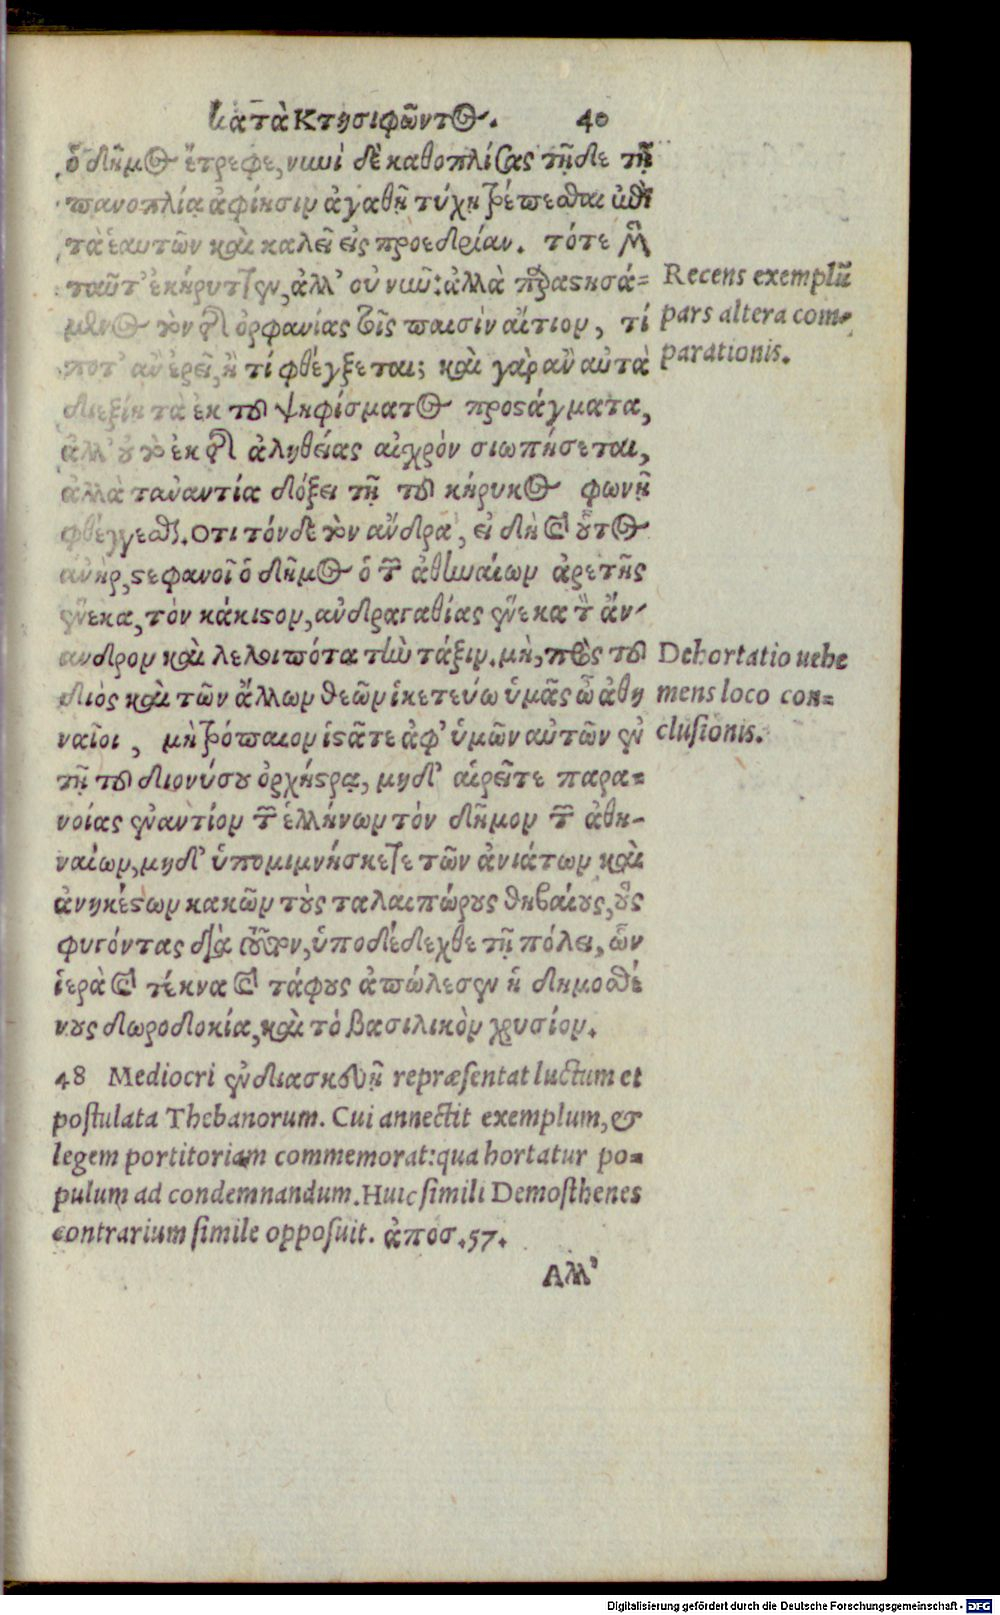 κατὰ Κτησιφῶντος. 40
ὁ δῆμος ἔτρεφε, νυνὶ δὲ καθοπλίσας τῇδε τῇ
πανοπλίᾳ ἀφίησιν ἀγαθῇ τύχῃ τρέπεσθαι ἐπὶ
τὰ ἑαυτῶν καὶ καλεῖ εἰς προεδρίαν. τότε μὲν
ταῦτ' ἐκήρυττεν, ἀλλ' οὐ νῦν: ἀλλὰ παραστησά=
μενος τὸν τῆς ὀρφανίας τοῖς παισὶν αἴτιον, τί
ποτ' ἂν ἐρεῖ, ἢ τί φθέγξεται; καὶ γὰρ ἂν αὐτὰ
διεξίῃ τὰ ἐκ τοῦ ψηφίσματος προστάγματα,
ἀλλ' οὐ τὸ ἐκ τῆς ἀληθείας αἰσχρὸν σιωπήσεται,
ἀλλὰ τἀναντία δόξει τῇ τοῦ κήρυκος φωνῇ
φθέγγεσθαι. Ὅτι τόνδε τὸν ἄνδρα, εἰ δὴ καὶ οὗτος
ἀνὴρ, στεφανοῖ ὁ δῆμος ὁ τῶν ἀθηναίων ἀρετῆς
ἕνεκα, τὸν κάκιστον, ἀνδραγαθίας ἕνεκα τὸν ἄν-
ανδρον καὶ λελοιπότα τὴν τάξιν. μὴ, πρὸς τοῦ
διὸς καὶ τῶν ἄλλων θεῶν ἱκετεύω ὑμᾶς ὦ ἀθη
ναῖοι, μὴ τρόπαιον ἱστᾶτε ἀφ' ὑμῶν αὐτῶν ἐν
τῇ τοῦ διονύσου ὀρχήστρᾳ, μηδ' αἱρεῖτε παρα=
νοίας ἐναντίον τῶν ἑλλήνων τὸν δῆμον τῶν ἀθη-
ναίων, μηδ' ὑπομιμνήσκετε τῶν ἀνιάτων καὶ
ἀνηκέστων κακῶν τοὺς ταλαιπώρους θηβαίους, οὓς
φυγόντας διὰ τοῦτον, ὑποδέδεχθε τῇ πόλει, ὧν
ἱερὰ καὶ τέκνα καὶ τάφους ἀπώλεσεν ἡ δημοσθέ
νους δωροδοκία, καὶ τὸ βασιλικὸν χρυσίον.
Recens exemplū
pars altera com-
parationis.
Dehortatio uehe
mens loco con=
clusionis.
48 Mediocri ἐνδιασκευῇ repræsentat luctum et
postulata Thebanorum. Cui annectit exemplum, &
legem portitoriam commemorat: qua hortatur po=
pulum ad condemnandum. Huic simili Demosthenes
contrarium simile opposuit. ἀποσ. 57.
Ἀλλ'
Digitalisierung gefördert durch die Deutsche Forschungsgemeinschaft - DFG